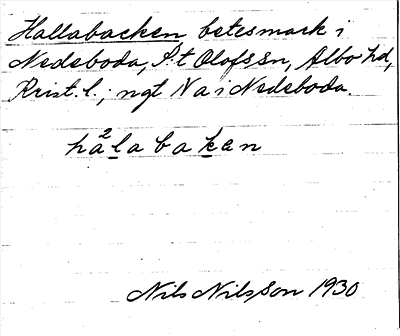 Hallabacken betesmark i
Nedeboda, S:t Olofs sn, Albo hd,
Krist. l.; ngt N a i Nedeboda.
ha²labakən
Nils Nilsson 1930